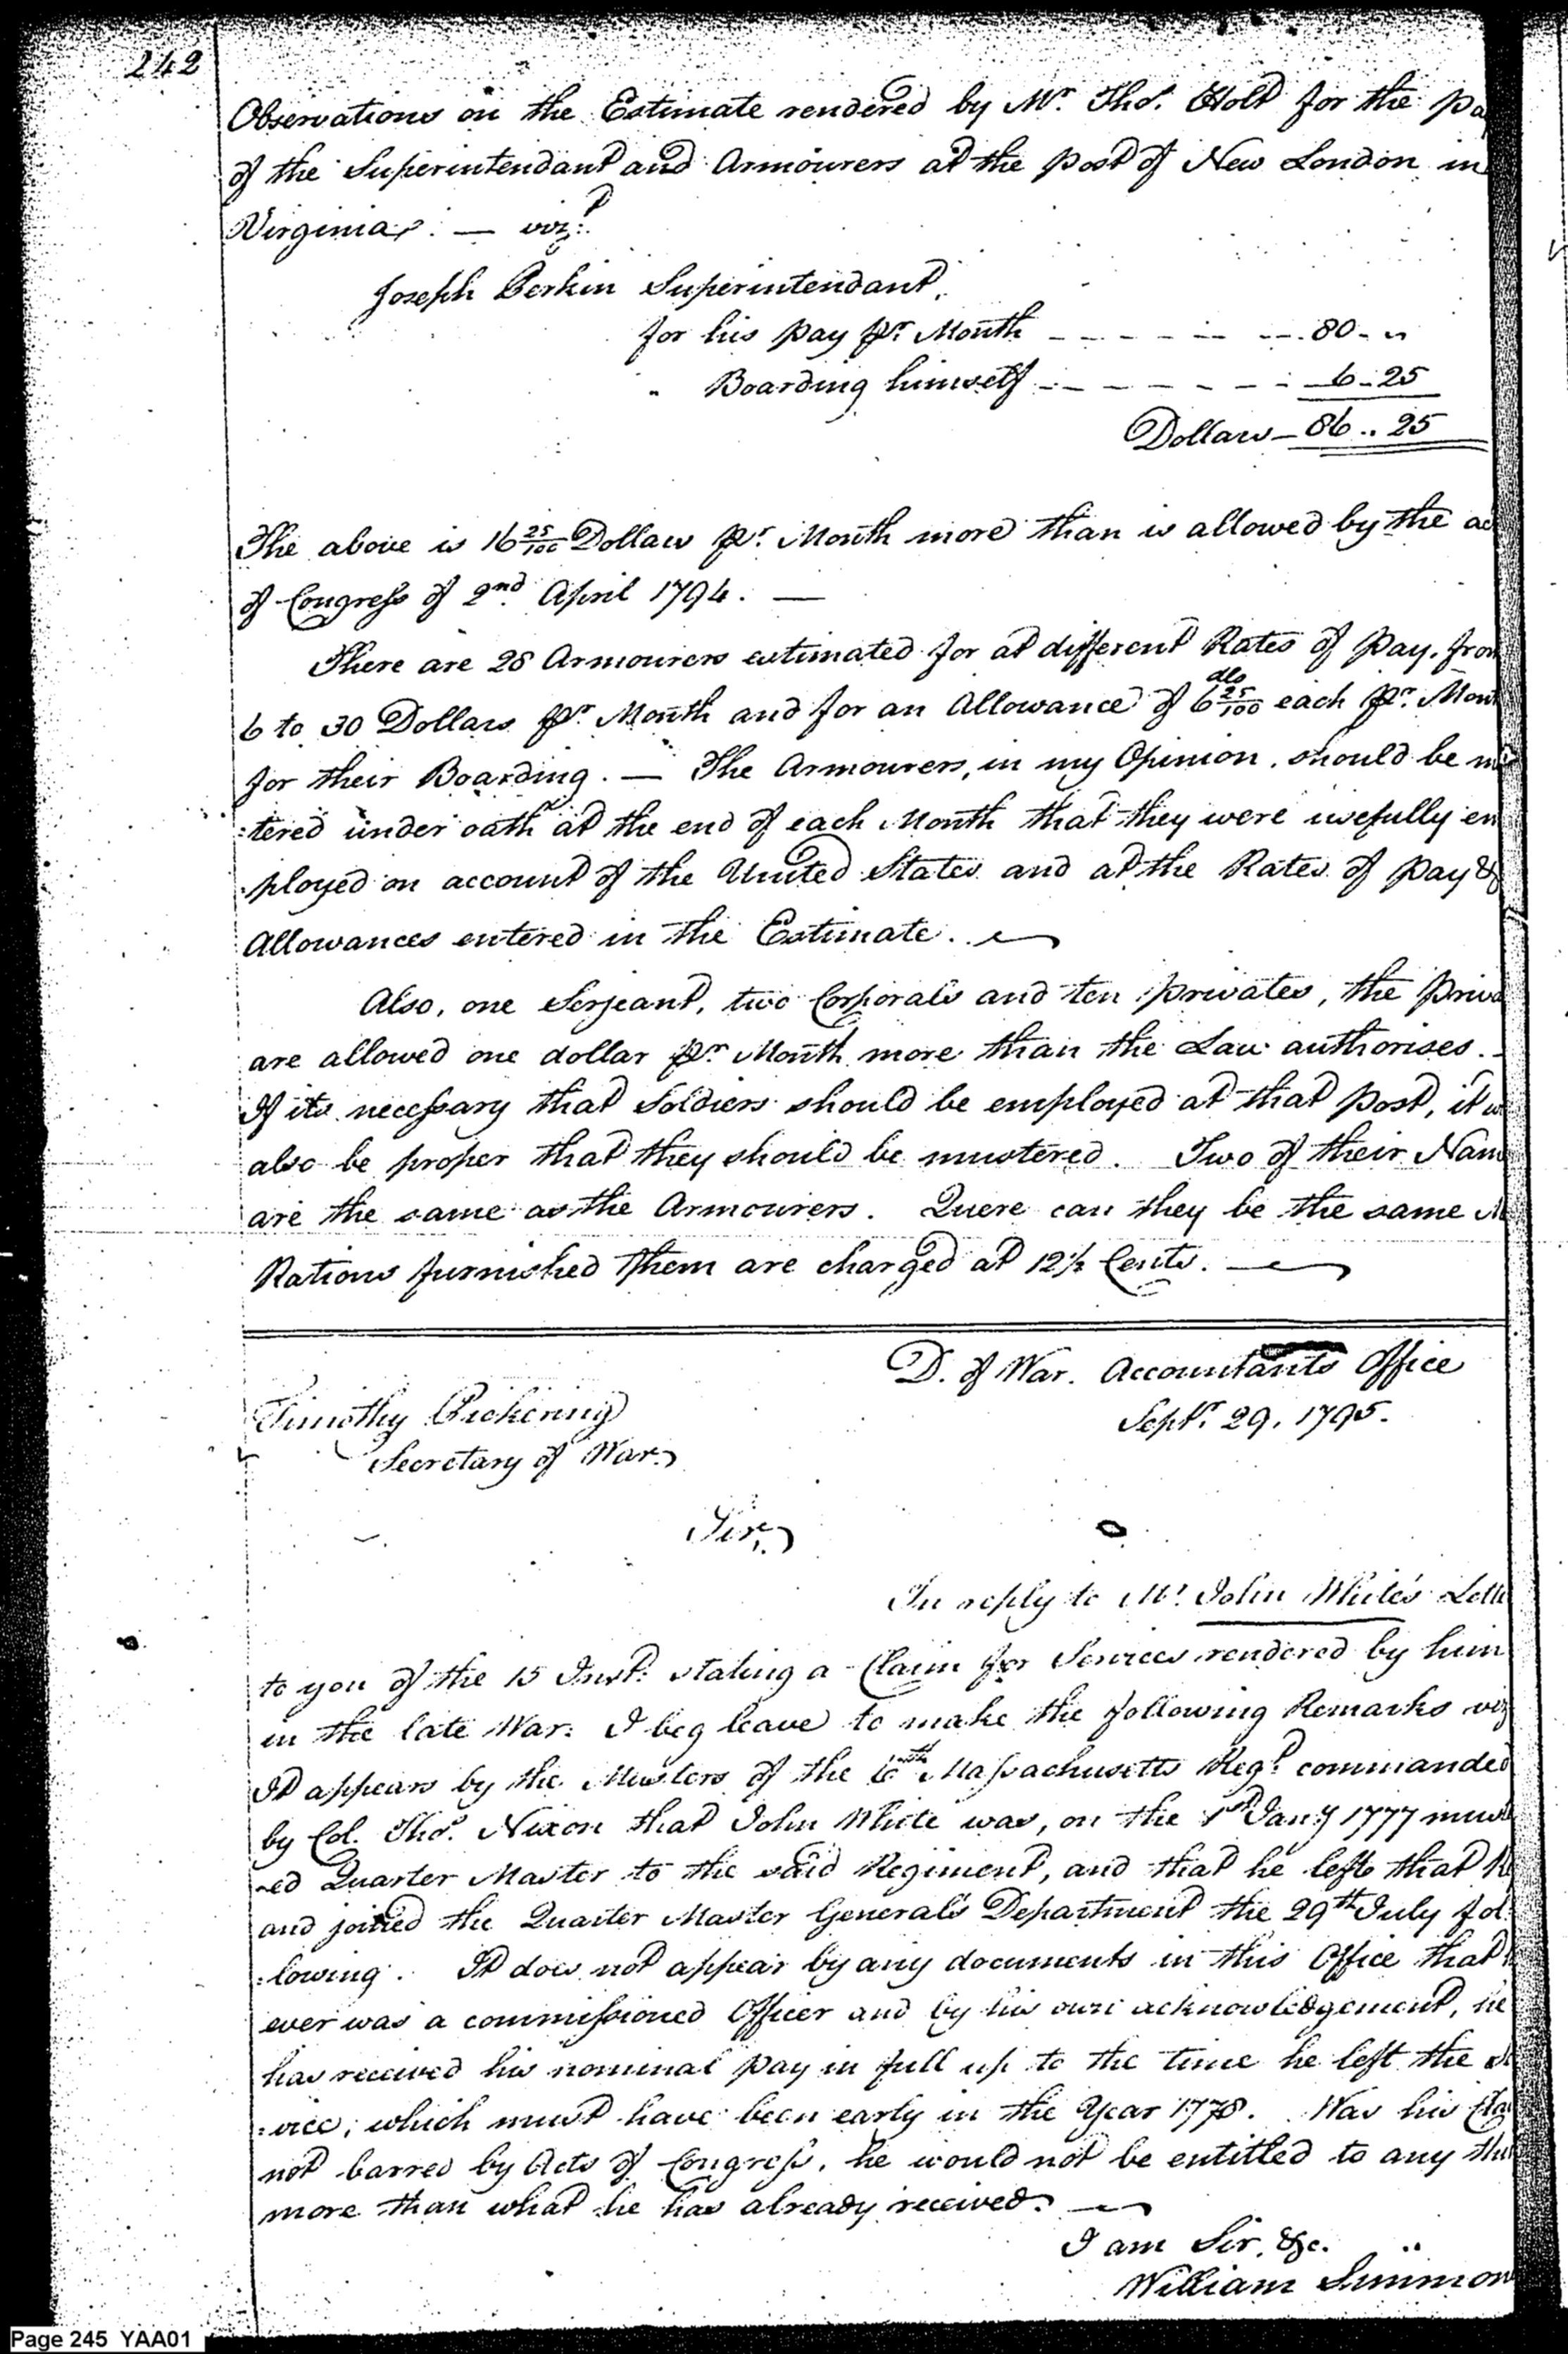 242
Observations on the Estimate rendered by Mr. Thos. Holt for the pa
of the Superintendant and Armourers at the post of New London in
Virginia: — vizt.
Joseph Perkin Superintendant,
for his pay pr. Month - - - - - - 80 - "
" Boarding himself - - - - - - - 6 - 25
Dollars — 86 .. 25
The above is 16 25/100 Dollars pr. Month more than is allowed by the ac
of Congress of 2nd. April 1794. —
There are 28 Armourers estimated for at different Rates of pay, from
6 to 30 Dollars pr. Month and for an Allowance of 6 25/100 dls each pr. Mont
for their Boarding. — The Armourers, in my Opinion, should be
:tered under oath at the end of each Month that they were usefully em
:ployed on account of the United States and at the Rates of pay &
Allowances entered in the Estimate. —
Also, one Serjeant, two Corporals and ten privates, the priva
are allowed one dollar pr. Month more than the Law authorises. -
If its necessary that Soldiers should be employed at that post, it w
also be proper that they should be mustered. Two of their Nam
are the same as the Armourers. Quere can they be the same M
Rations furnished them are charged at 12 1/2 Cents. —
D. of War. Accountants Office
Septr. 29, 1795.
Timothy Pickering
Secretary of War
Sir,
In reply to Mr. John White's Lette
to you of the 15 Inst. stating a Claim for Services rendered by him
in the late War: I beg leave to make the following Remarks viz
It appears by the Musters of the 6th Massachusetts Regt. commanded
by Col. Thos. Nixon that John White was, on the 1st Jany 1777 must
-ed Quarter Master to the said Regiment, and that he left that R
and joined the Quarter Master General's Department the 29th July fol
:lowing. It does not appear by any documents in this Office that
ever was a commissioned Officer and by his own acknowledgement, he
has received his nominal pay in full up to the time he left the Se
:vice; which must have been early in the Year 1778. Was his Cla
not barred by Acts of Congress, he would not be entitled to any thin
more than what he has already received. —
I am Sir, &c.
William Simmon
Page 245 YAA01